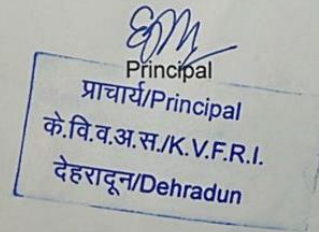 Principal
प्राचार्य/Principal
के.वि.व.अ.स./K.V.F.R.I.
देहरादून/Dehradun